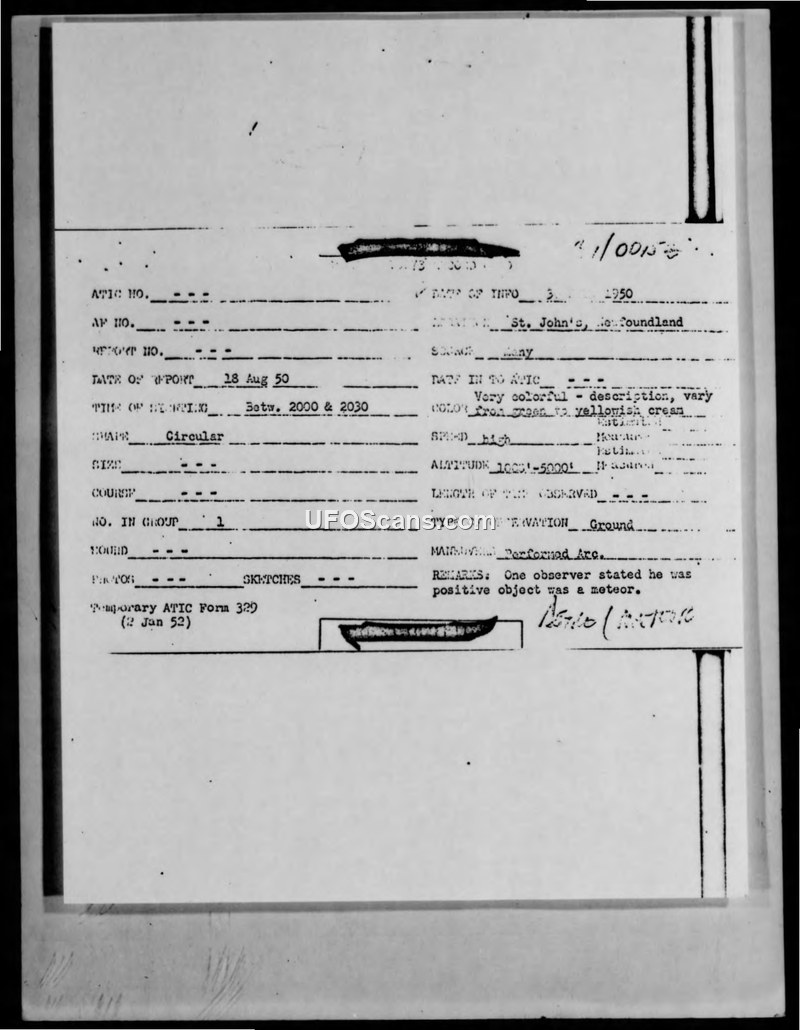 ATIC NO. - - - DATE OF INFO 3 1950
AF NO. - - - St. John's, Newfoundland
REPORT NO. - - - SOURCE Many
DATE OF REPORT 18 Aug 50 DATE IN TO ATIC - - -
TIME OF SIGHTING Betw. 2000 & 2030 COLOR Very colorful - description, vary
from green to yellowish cream
SHAPE Circular SPEED high
SIZE - - - ALTITUDE 1000'-5000'
COURSE - - - LENGTH OF TIME OBSERVED - - -
NO. IN GROUP 1 TYPE OF OBSERVATION Ground
SOUND - - - MANEUVERS Performed Arc.
PHOTOS - - - SKETCHES - - - REMARKS: One observer stated he was
positive object was a meteor.
Temporary ATIC Form 329
(2 Jan 52)
UFOScans.com